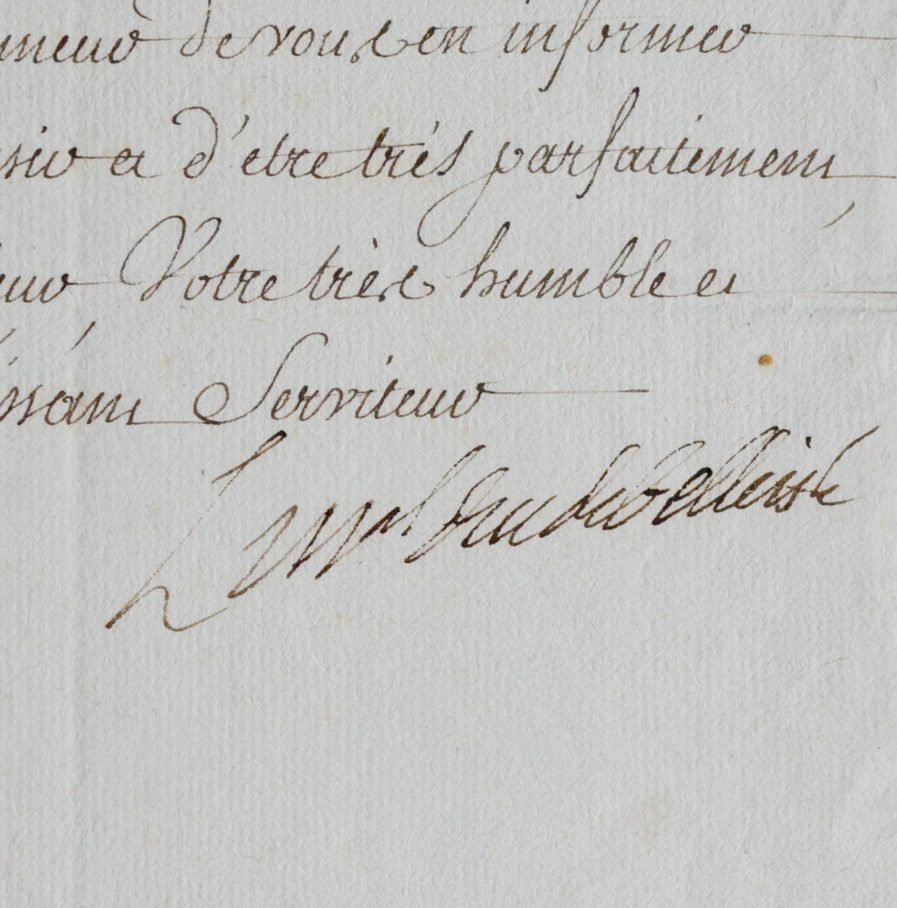 neur de vous en informer
sir et d'etre très parfaitement
eur Votre très humble et
issánt Serviteur
Le mal duc de belleisle